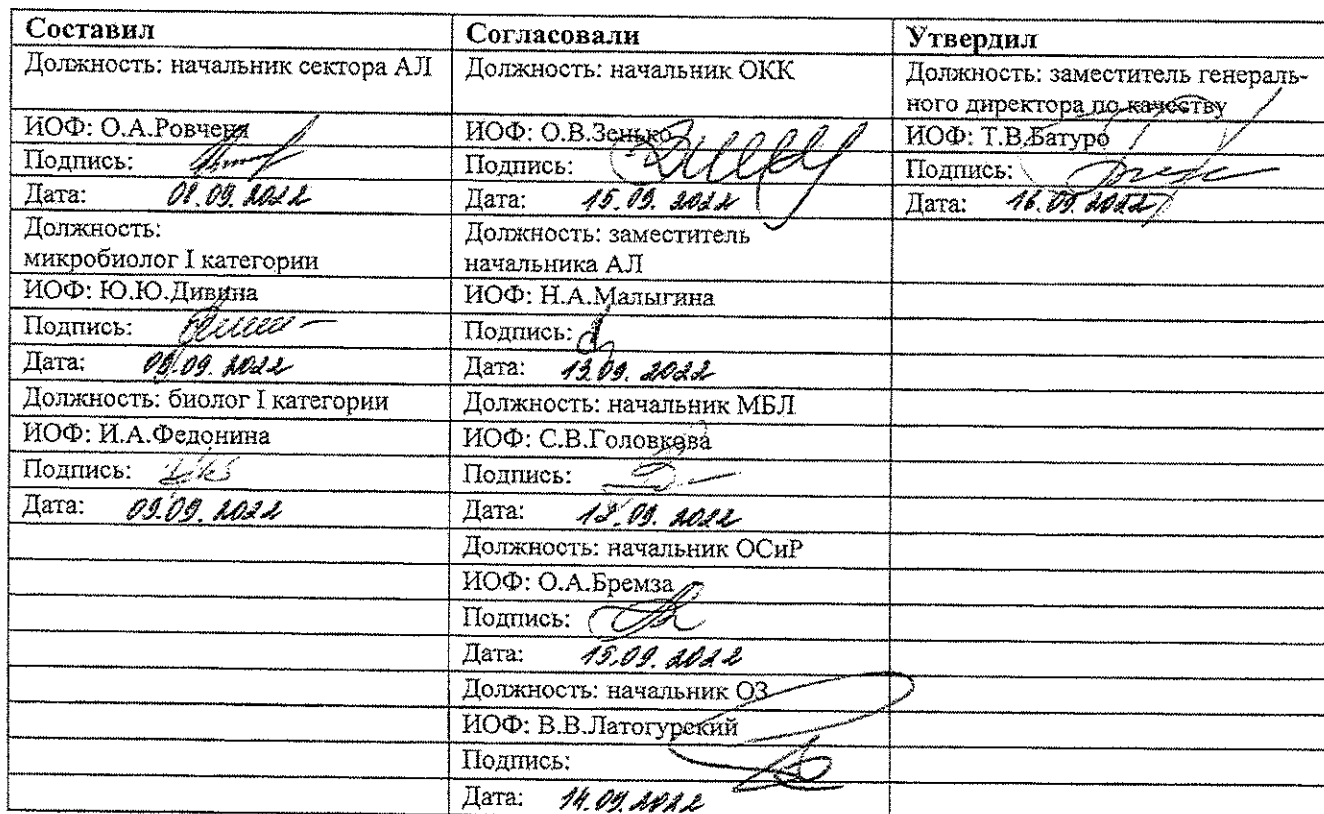 Составил Согласовали Утвердил
Должность: начальник сектора АЛ Должность: начальник ОКК Должность: заместитель генераль-
ного директора по качеству
ИОФ: О.А.Ровченя ИОФ: О.В.Зенько ИОФ: Т.В.Батуро
Подпись: Подпись: Подпись:
Дата: Дата: 15.09.2022 Дата: 16.09.2022
Должность: Должность: заместитель
микробиолог I категории начальника АЛ
ИОФ: Ю.Ю.Дивина ИОФ: Н.А.Малыгина
Подпись: Подпись:
Дата: 09.09.2022 Дата: 13.09.2022
Должность: биолог I категории Должность: начальник МБЛ
ИОФ: И.А.Федонина ИОФ: С.В.Головкова
Подпись: Подпись:
Дата: 09.09.2022 Дата:
Должность: начальник ОСиР
ИОФ: О.А.Бремза
Подпись:
Дата: 15.09.2022
Должность: начальник ОЗ
ИОФ: В.В.Латогурский
Подпись:
Дата: 14.09.2022